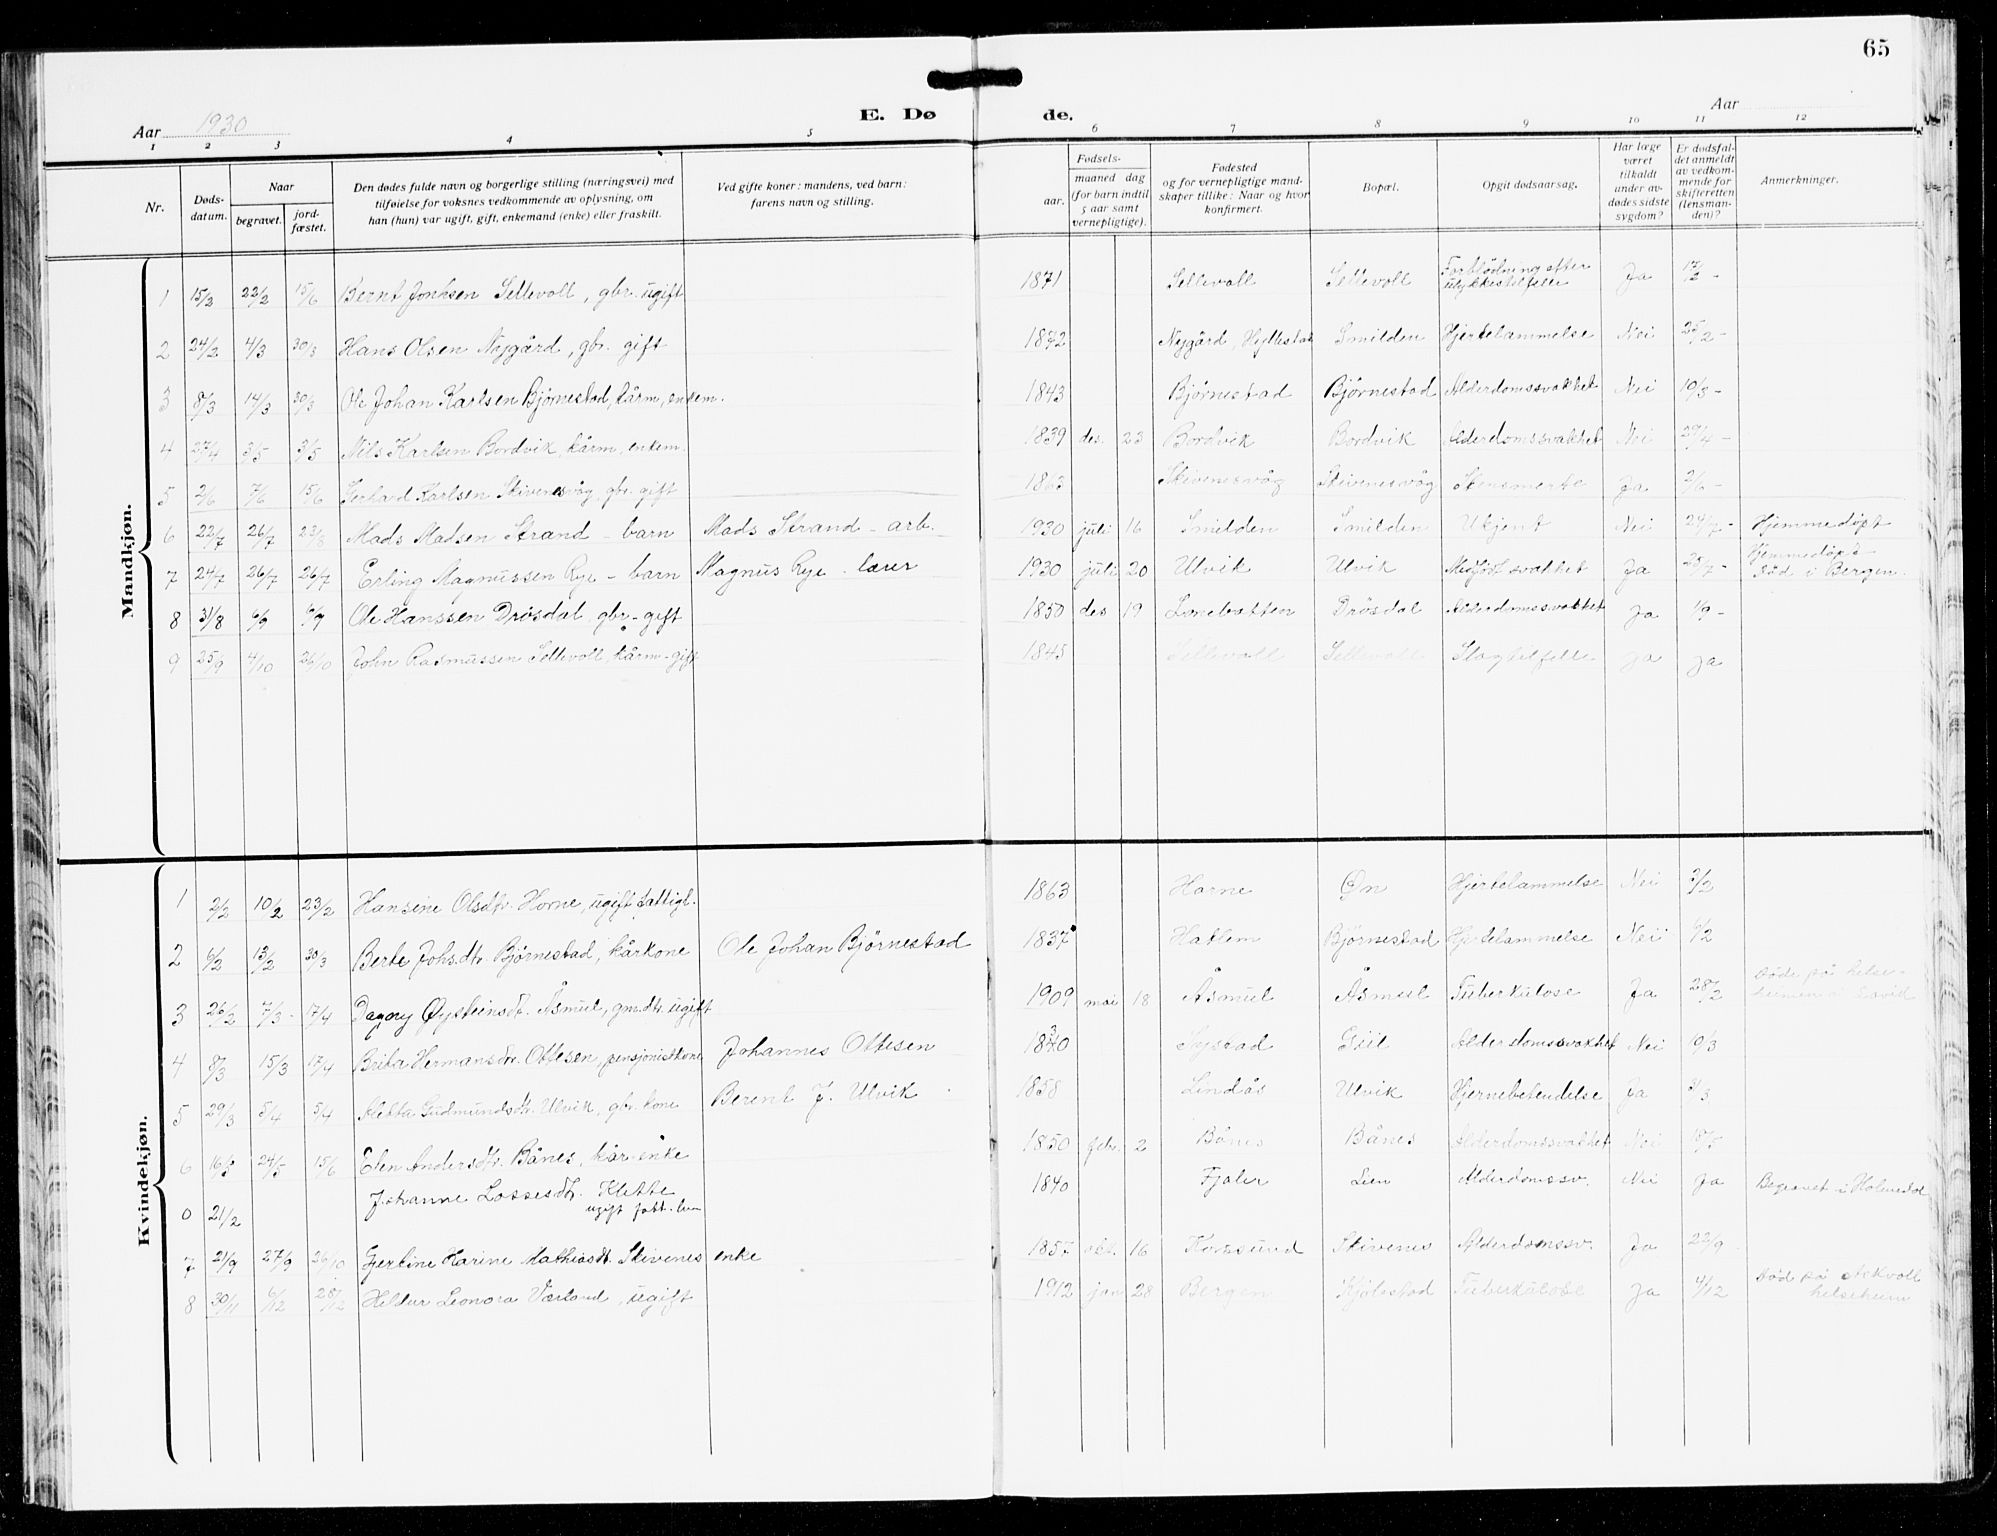 65
Aar 1930
E. Dø de.
Aar
1 2 3 4 5 6 7 8 9 10 11 12
Nr.
Døds-
datum.
Naar
begravet.
jord-
fæstet.
Den dødes fulde navn og borgerlige stilling (næringsvei) med
tilføielse for voksnes vedkommende av oplysning, om
han (hun) var ugift, gift, enkemand (enke) eller fraskilt.
Ved gifte koner: mandens, ved barn:
farens navn og stilling.
aar.
Fødsels-
maaned dag
(for barn indtil
5 aar samt
vernepligtige).
Fødested
og for vernepligtige mand-
skaper tillike: Naar og hvor
konfirmert.
Bopæl.
Opgit dødsaarsag.
Har læge
været
tilkaldt
under av-
dødes sidste
sygdom?
Er dødsfal-
det anmeldt
av vedkom-
mende for
skifteretten
(lensman-
den)?
Anmerkninger.
Mandkjøn.
1 15/2 22/2 15/6 Bernt Sellevoll, gbr. ugift 1871 Sellevoll Sellevoll Forblödning efter ulykkestilfelle Ja 17/2 -
2 24/2 4/3 30/3 Hans Olsen Nygård, gbr. gift 1872 Nygård, Smilden Hjertelammelse Nei 25/2 -
3 8/3 14/3 30/3 Ole Johan Karlsen Björnestad, kårm, enkem. 1843 Björnestad Björnestad Alderdomssvakhet Nei 10/3 -
4 27/4 3/5 3/5 Nils Karlsen Bordvik, kårm. enkem. 1839 des. 23 Bordvik Bordvik Alderdomssvakhet Nei 29/4 -
5 2/6 7/6 15/6 Gerhard Karlsen Skivenesvåg, gbr. gift 1863 Skivenesvåg Skivenesvåg Ja 2/6 -
6 22/7 26/7 23/8 Mads Madsen Strand - barn Mads Strand - arb. 1930 juli 16 Smilden Smilden Ukjent Nei 24/7 - Hjemmedöpt
7 24/7 26/7 26/7 Erling Magnussen Rye - barn Magnus Rye - lærer 1930 juli 20 Ulvik Ulvik Medfödt svakhet Ja 25/7 - Hjemmedöpt
Död i Bergen.
8 31/8 6/9 6/9 Ole Hanssen Drösdal, gbr - gift 1850 des 19 Drösdal Alderdomssvakhet Ja 1/9 -
9 25/9 4/10 26/10 John Rasmussen Sellevoll, kårm - gift 1845 Sellevoll Sellevoll Slagtilfelle ja ja
Kvindekjøn.
1 2/2 10/2 23/2 Hansine Olsdtr. Horne, ugift fattigl. 1863 Horne Øn Hjertelammelse Nei 3/2
2 6/2 13/2 30/3 Berte Johsdtr. Björnestad, kårkone Ole Johan Björnestad 1837 Hatlem Björnestad Hjertelammelse Nei 6/2
3 26/2 7/3 17/4 Dagny Øysteinsdt. Åsmul, gm.dtr. ugift 1909 mai 18 Åsmul Åsmul Tuberkulose Ja 28/2 Döde på helse-
heimen i
4 8/3 15/3 17/4 Brita Hermansdtr. Ottesen, pensjonistkone Johannes Ottesen Systad Alderdomssvakhet Nei 10/3
5 29/3 5/4 5/4 Aletta Gudmundsdtr. Ulvik, gbr. kone Berent J. Ulvik 1858 Lindås Ulvik Hjernebetendelse Ja 31/3
6 16/5 24/5 15/6 Elen Andersdtr. Bånes, kår-enke 1850 febr. 2 Bånes Bånes Alderdomssvakhet Nei 18/5
0 21/2 Johanne Lassesdtr. Klette
ugift fatt. lem 1840 Fjaler Lien Alderdomssv. Nei Ja Begravet i Holmedal
7 21/9 27/9 26/10 Gjertine Karine Mathiasdt. Skivenes enke 1857 okt. 16 Korssund Skivenes Alderdomssv. Ja 22/9
8 30/11 6/12 28/12 Heldur Leonora Værland, ugift 1912 jan 28 Bergen Kjölestad Tuberkulose Ja 4/12 Död på
helseheim